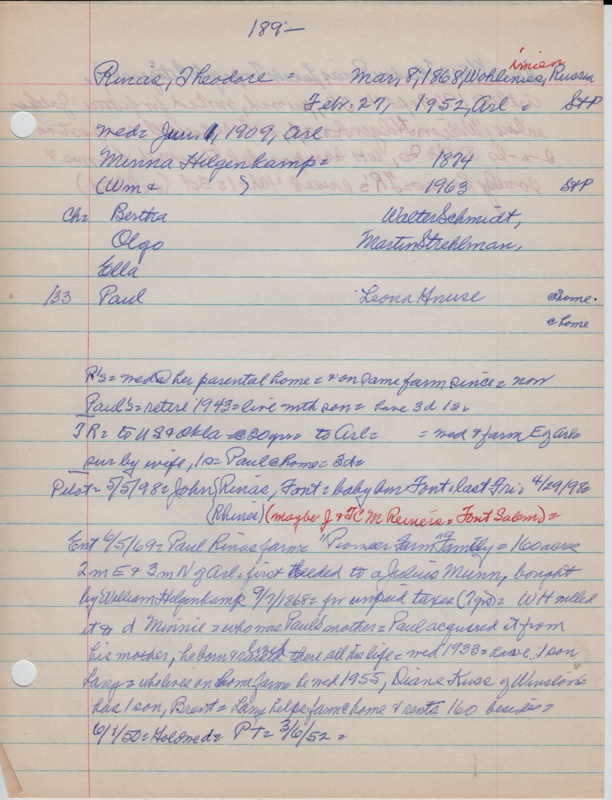 189-
imien
Rinas, Theodore = Mar, 8, 1868, Wohlinies, Russia
Febr. 27, 1952, Arl = StP
med= Jun. 1, 1909, Arl
Minna Hilgenkamp = 1874
(Wm & ) 1963 StP
Ch= Bertha Walter Schmidt,
Olgo Martin Strehlman,
Ella
/33 Paul Leona Gnuse @home.
@home
R's = med @ her parental home = & on same farm since = now
Paul's = retire 1943 = live with son = have 3d 1s.
TR = to US & Okla to Arl = = med & farm E of Arl =
sur by wife, 1s = Paul @ home = 3d =
Pilot = 5/5/98 = John Rinas, Font = baby born Font, last Fri, 4/29/98
(maybe J & TC M Reiners = Font Salem) =
Ent 6/5/69 = Paul Rinas farm = "Pioneer Farm Family = 160 acre
2 m E & 3 m N of Arl, first deeded to a Julius Munn, bought
by William Hilgenkamp 9/7/1868 = for unpaid taxes = WH willed
it to d Minnie = who was Paul's mother = Paul acquired it from
his mother, he born & lived there all his life = med 1933 = have 1 son
Larry = who lives on home farm he med 1955, Diane Kuss of Winslow =
has 1 son, Brent = Larry helps farm @ home & rents 160 besides =
6/1/50 = PT = 3/6/52 =